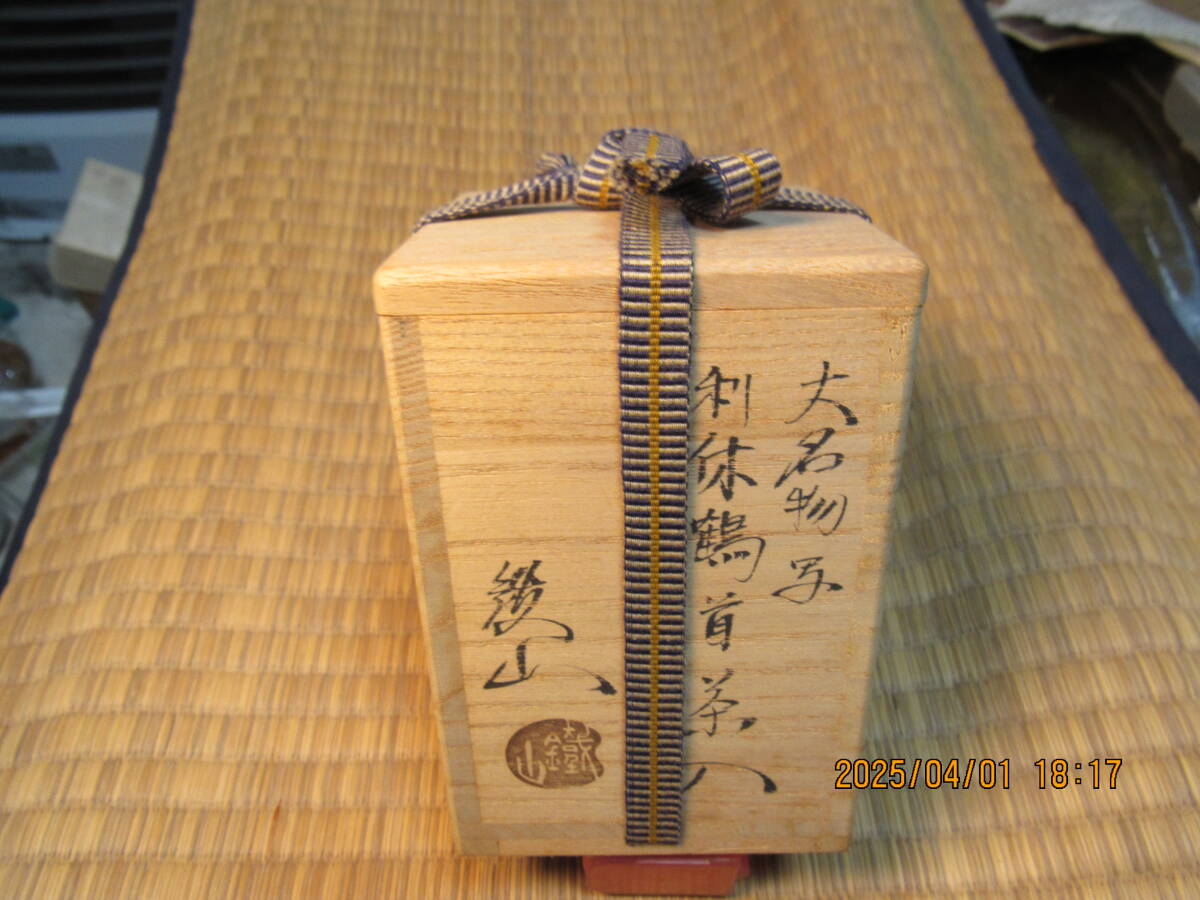 大名物写
利休鶴首茶入
鐵山
鐵山
2025/04/01 18:17